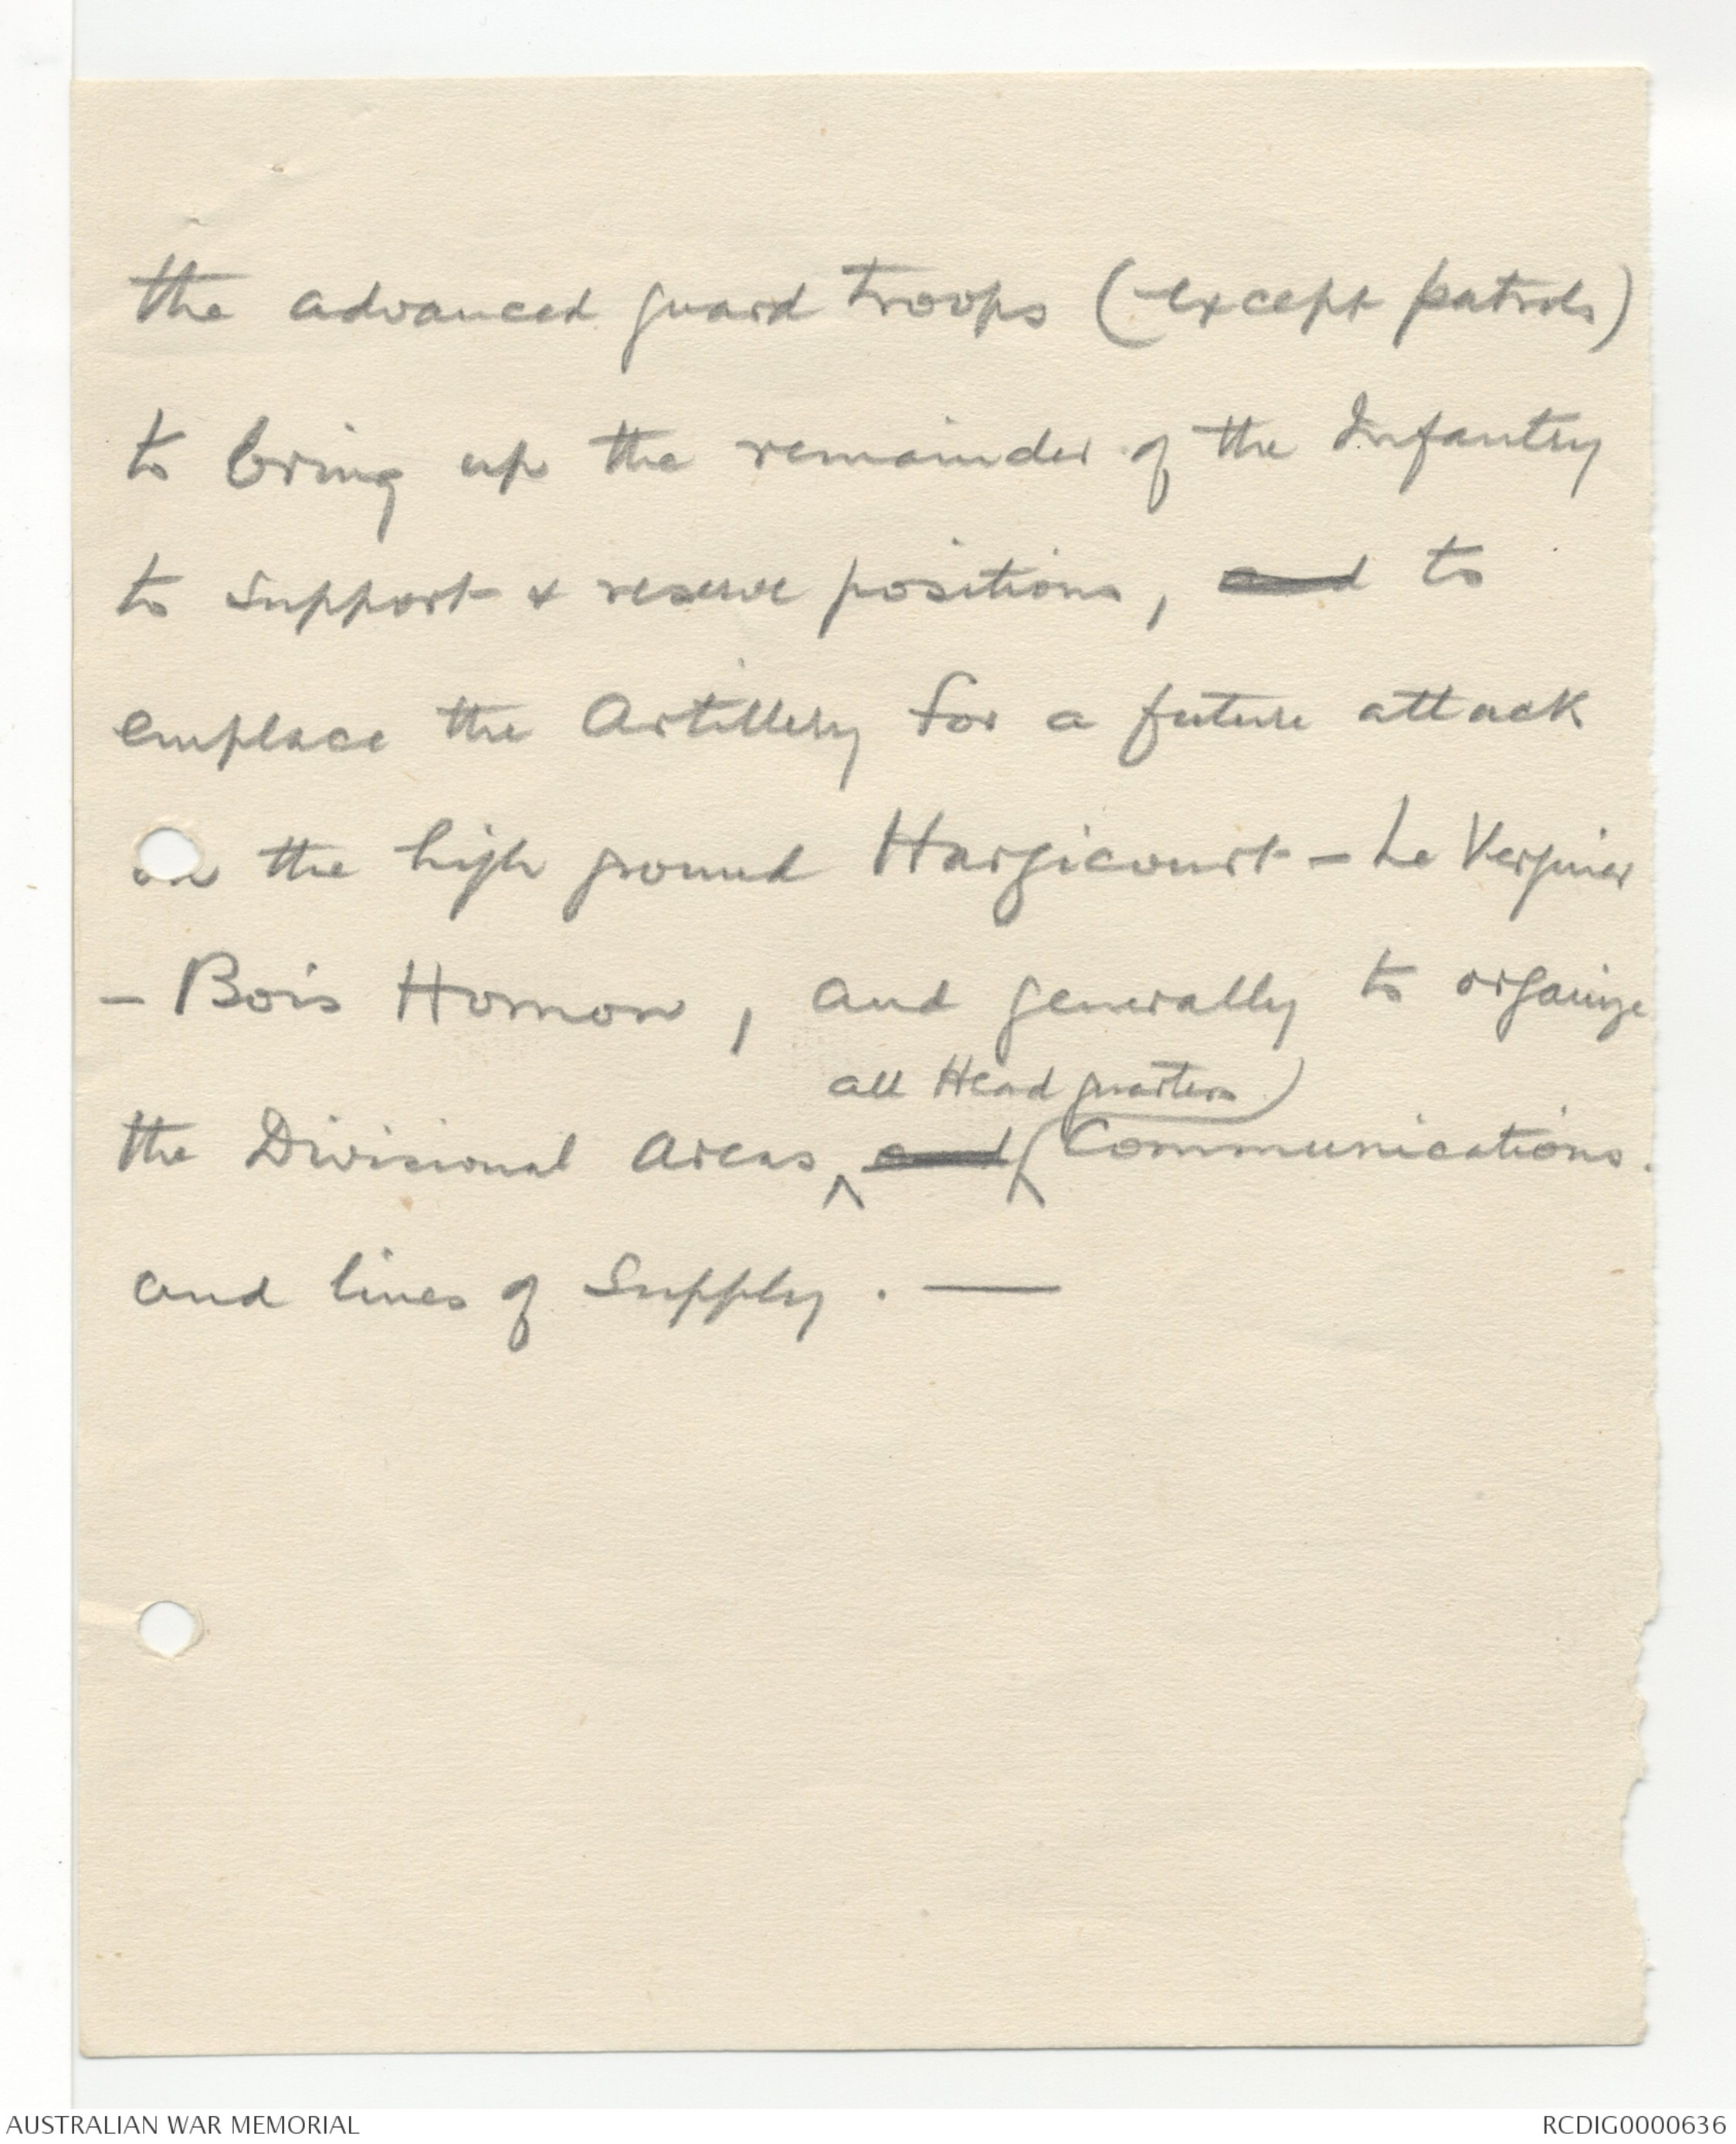 the advanced guard troops (except patrols)
to bring up the remainder of the Infantry
to support & reserve positions, and to
emplace the Artillery for a future attack
on the high ground Hargicourt - Le Verguier
- Bois Homon, and generally to organize
all Head quarters
the Divisional Areas, and Communications.
and lines of Supply. —
AUSTRALIAN WAR MEMORIAL
RCDIG0000636